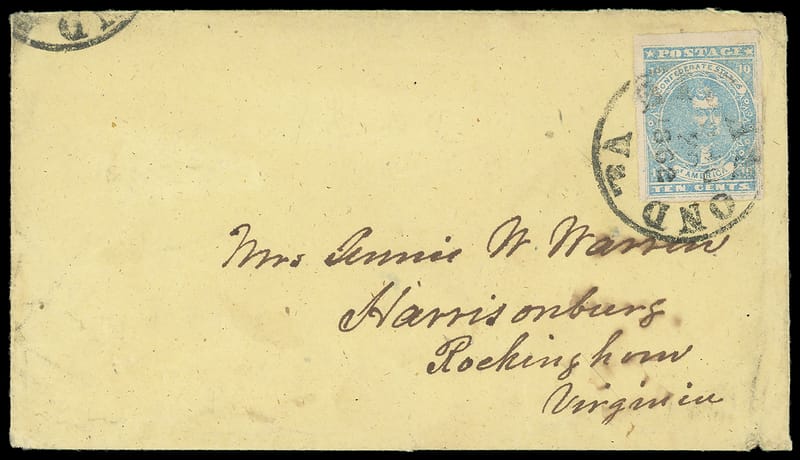 ND
POSTAGE
10
CONFEDERATE STATES
OF AMERICA
TEN CENTS
OND VA
1862
Mrs Jennie W. Warren
Harrisonburg
Rockingham
Virginia